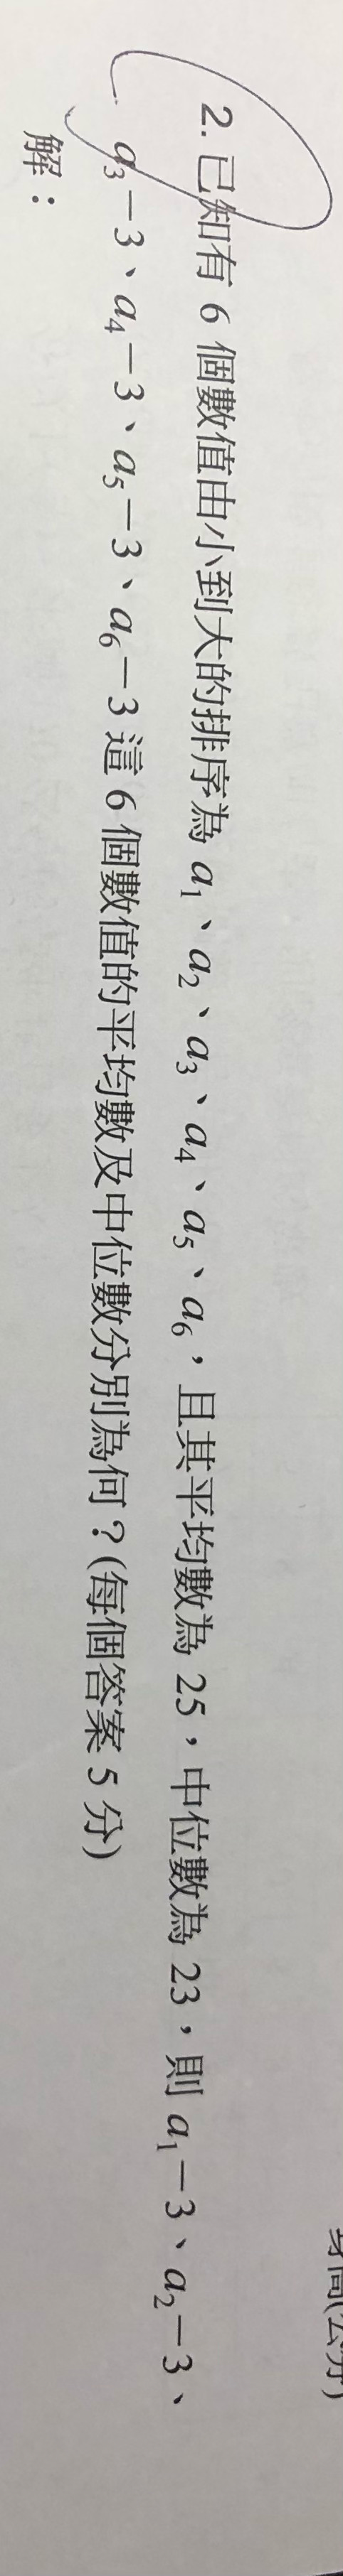 2. 已知有 6 個數值由小到大的排序為 a₁、a₂、a₃、a₄、a₅、a₆，且其平均數為 25，中位數為 23，則 a₁－3、a₂－3、
a₃－3、a₄－3、a₅－3、a₆－3 這 6 個數值的平均數及中位數分別為何？(每個答案 5 分)
解：